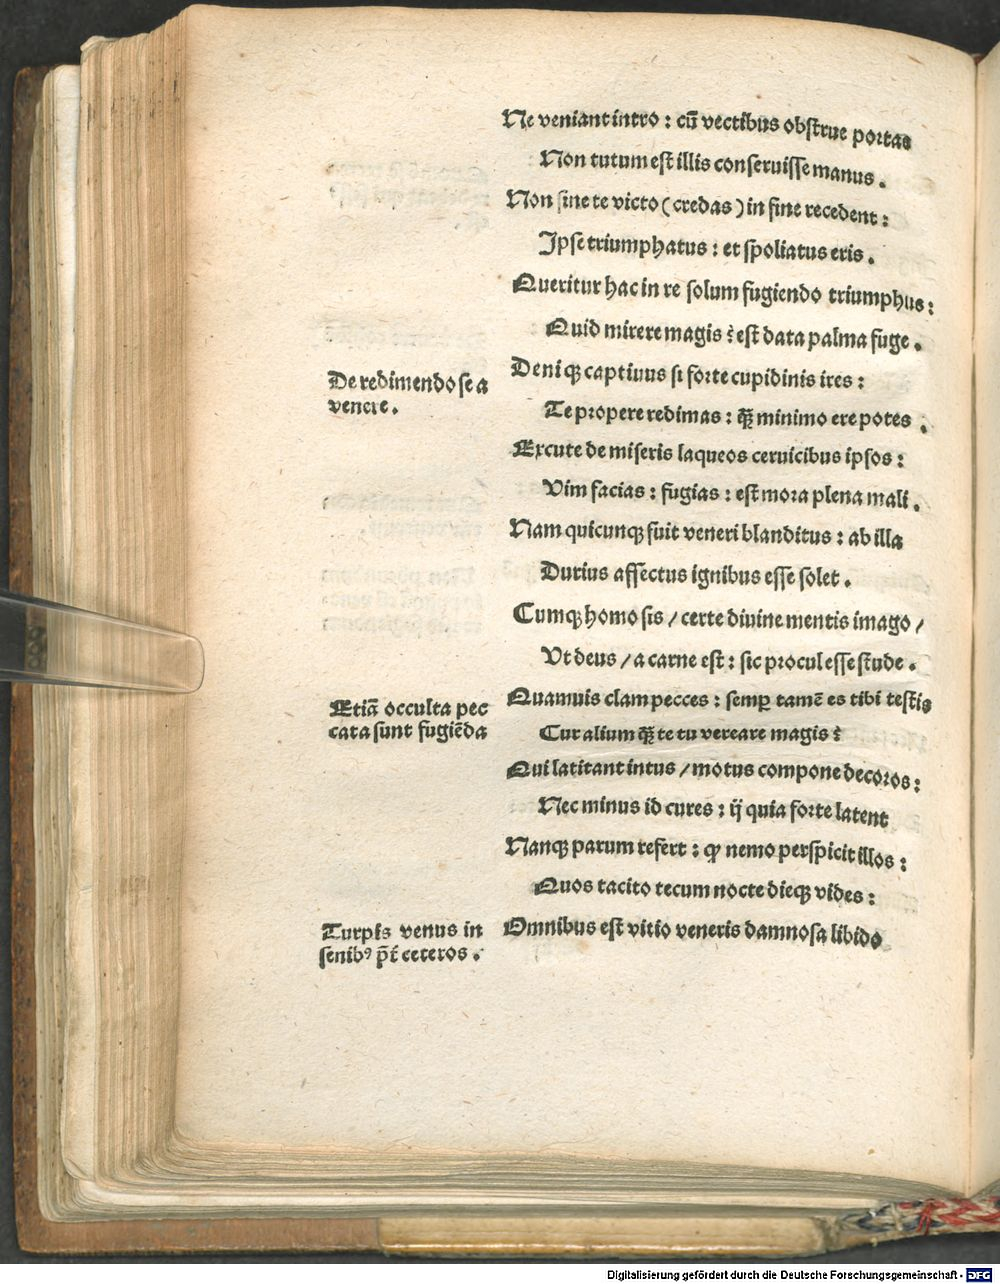 Ne veniant intro : cū vectibus obstrue portas
Non tutum est illis conseruisse manus .
Non sine te victo ( credas ) in fine recedent :
Ipse triumphatus : et spoliatus eris .
Queritur hac in re solum fugiendo triumphus :
Quid mirere magis ? est data palma fuge .
De redimendo se a
venere .
Deniqꝫ captiuus si forte cupidinis ires :
Te propere redimas : qꝫ̄ minimo ere potes .
Excute de miseris laqueos ceruicibus ipsos :
Vim facias : fugias : est mora plena mali .
Nam quicunqꝫ fuit veneri blanditus : ab illa
Durius affectus ignibus esse solet .
Cumqꝫ homo sis / certe diuine mentis imago /
Vt deus / a carne est : sic procul esse stude .
Etiā occulta pec
cata sunt fugiēda
Quamuis clam pecces : semꝑ tamē es tibi testis
Cur alium qꝫ̄ te tu vereare magis ?
Qui latitant intus / motus compone decoros :
Nec minus id cures : ij quia forte latent
Nanqꝫ parum refert : ꝙ nemo perspicit illos :
Quos tacito tecum nocte dieqꝫ vides :
Turpis venus in
senibꝰ p̄t ceteros .
Omnibus est vitio veneris damnosa libido
Digitalisierung gefördert durch die Deutsche Forschungsgemeinschaft - DFG